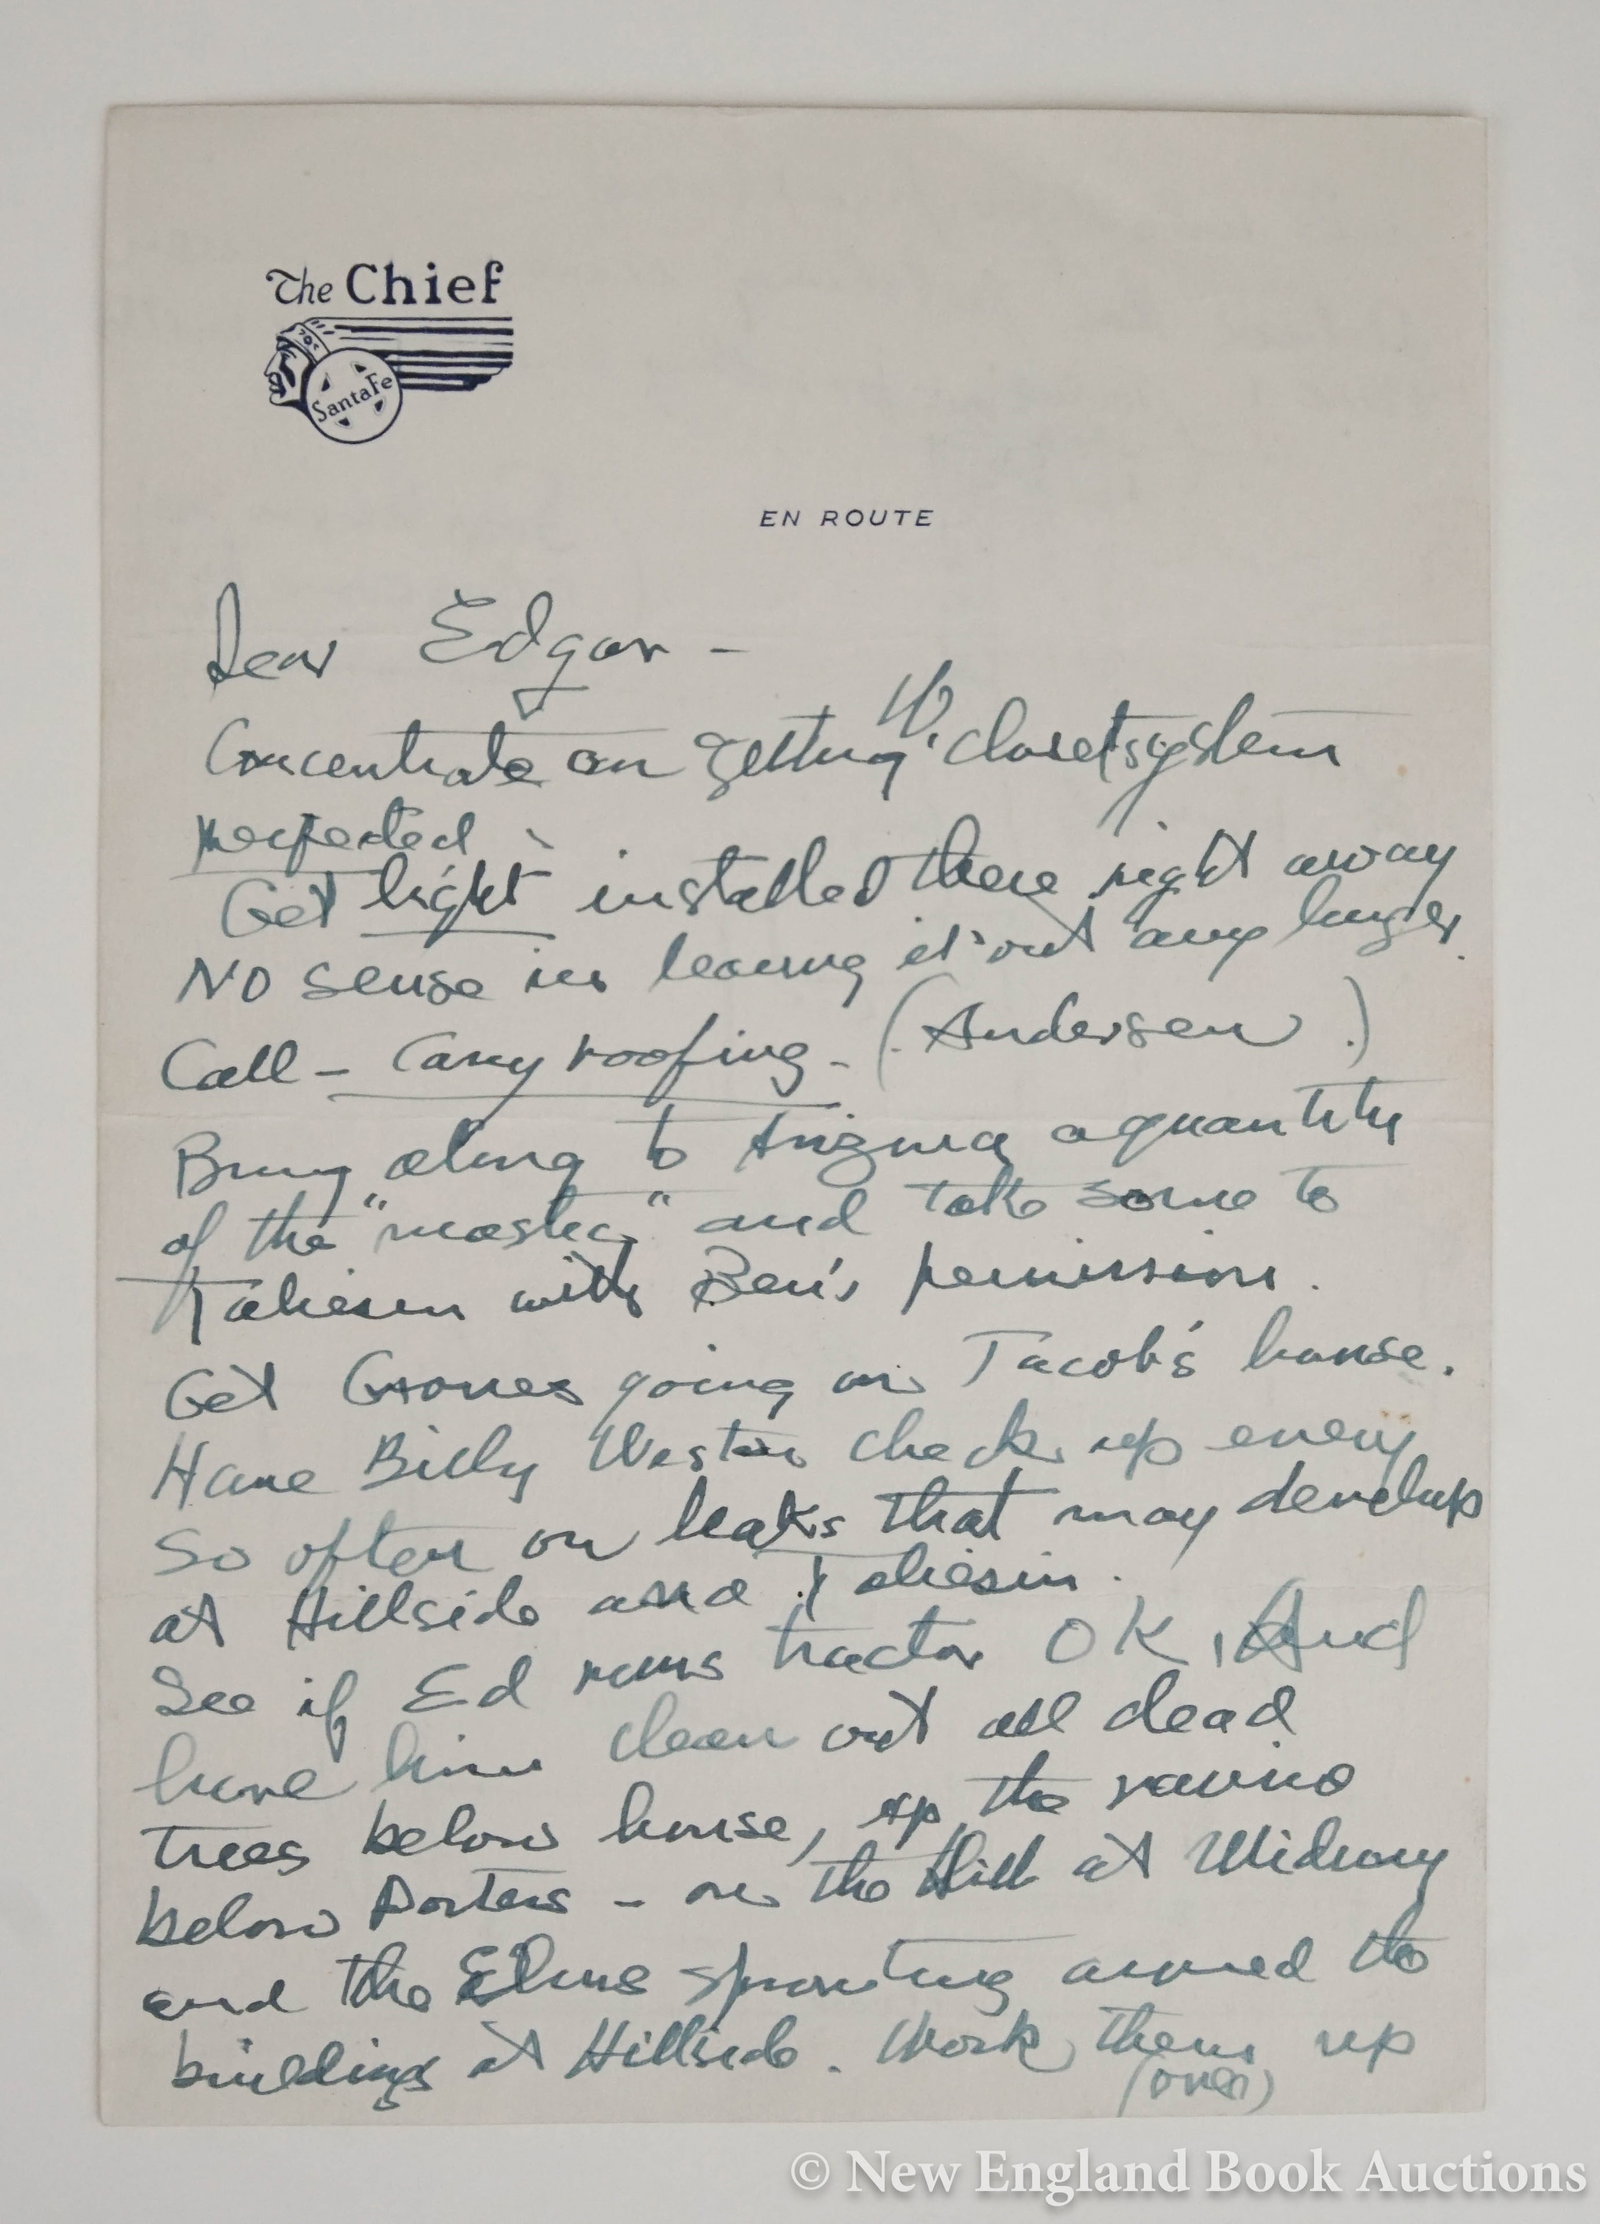 The Chief
Santa Fe
EN ROUTE
Dear Edgar -
Concentrate on getting W. closet system
perfected -
Get light installed there right away
No sense in leaving it out any longer.
Call - Carey roofing - (Andersen)
Bring along to a quantity
of the "mastic" and take some to
Taliesin with Ben's permission.
Get Groves going on Jacob's house.
Have Billy Weston check up every
so often on leaks that may develop
at Hillside and Taliesin.
See if Ed runs tractor OK, And
have him clean out all dead
trees below house, up the ravine
below Porters - on the Hill at Midway
and the Elms sprouting around the
buildings at Hillside. Work them up
(over)
© New England Book Auctions